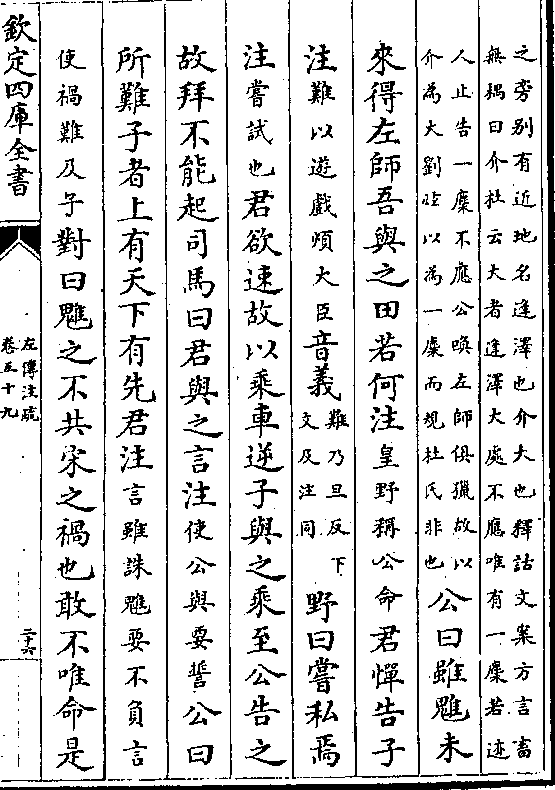 之旁别有近地名逢澤也介大也釋詁文案方言畜
無耦曰介杜云大者逢澤大處不應唯有一麋若迹
人止告一麋不應公喚左師俱獵故以
介為大劉炫以為一麋而規杜氏非也
公曰雖魋未
來得左師吾與之田若何注皇野稱公命君憚告子
注難以遊戲煩大臣音義難乃旦反下
文及注同
野曰嘗私焉
注嘗試也君欲速故以乘車逆子與之乘至公告之
故拜不能起司馬曰君與之言注使公與要誓公曰
所難子者上有天下有先君注言雖誅魋要不負言
使禍難及子對曰魋之不共宋之禍也敢不唯命是
欽定四庫全書
左傳注疏
卷五十九
二十六